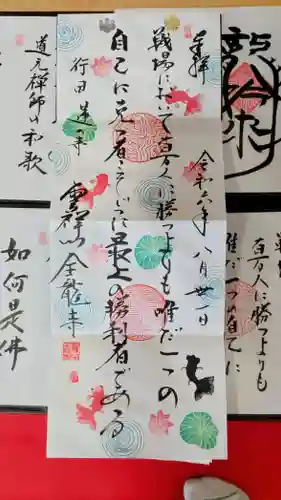 奉拝
令和六年 八月廿一日
戦場において百万人に勝つよりも 唯だ一つの
自己に克つ者こそ じつに最上の勝利者である
行田蓮 雲祥山全龍寺
道元禅師の和歌
如何是仏
百万人に勝つよりも
唯だ一つの自己に